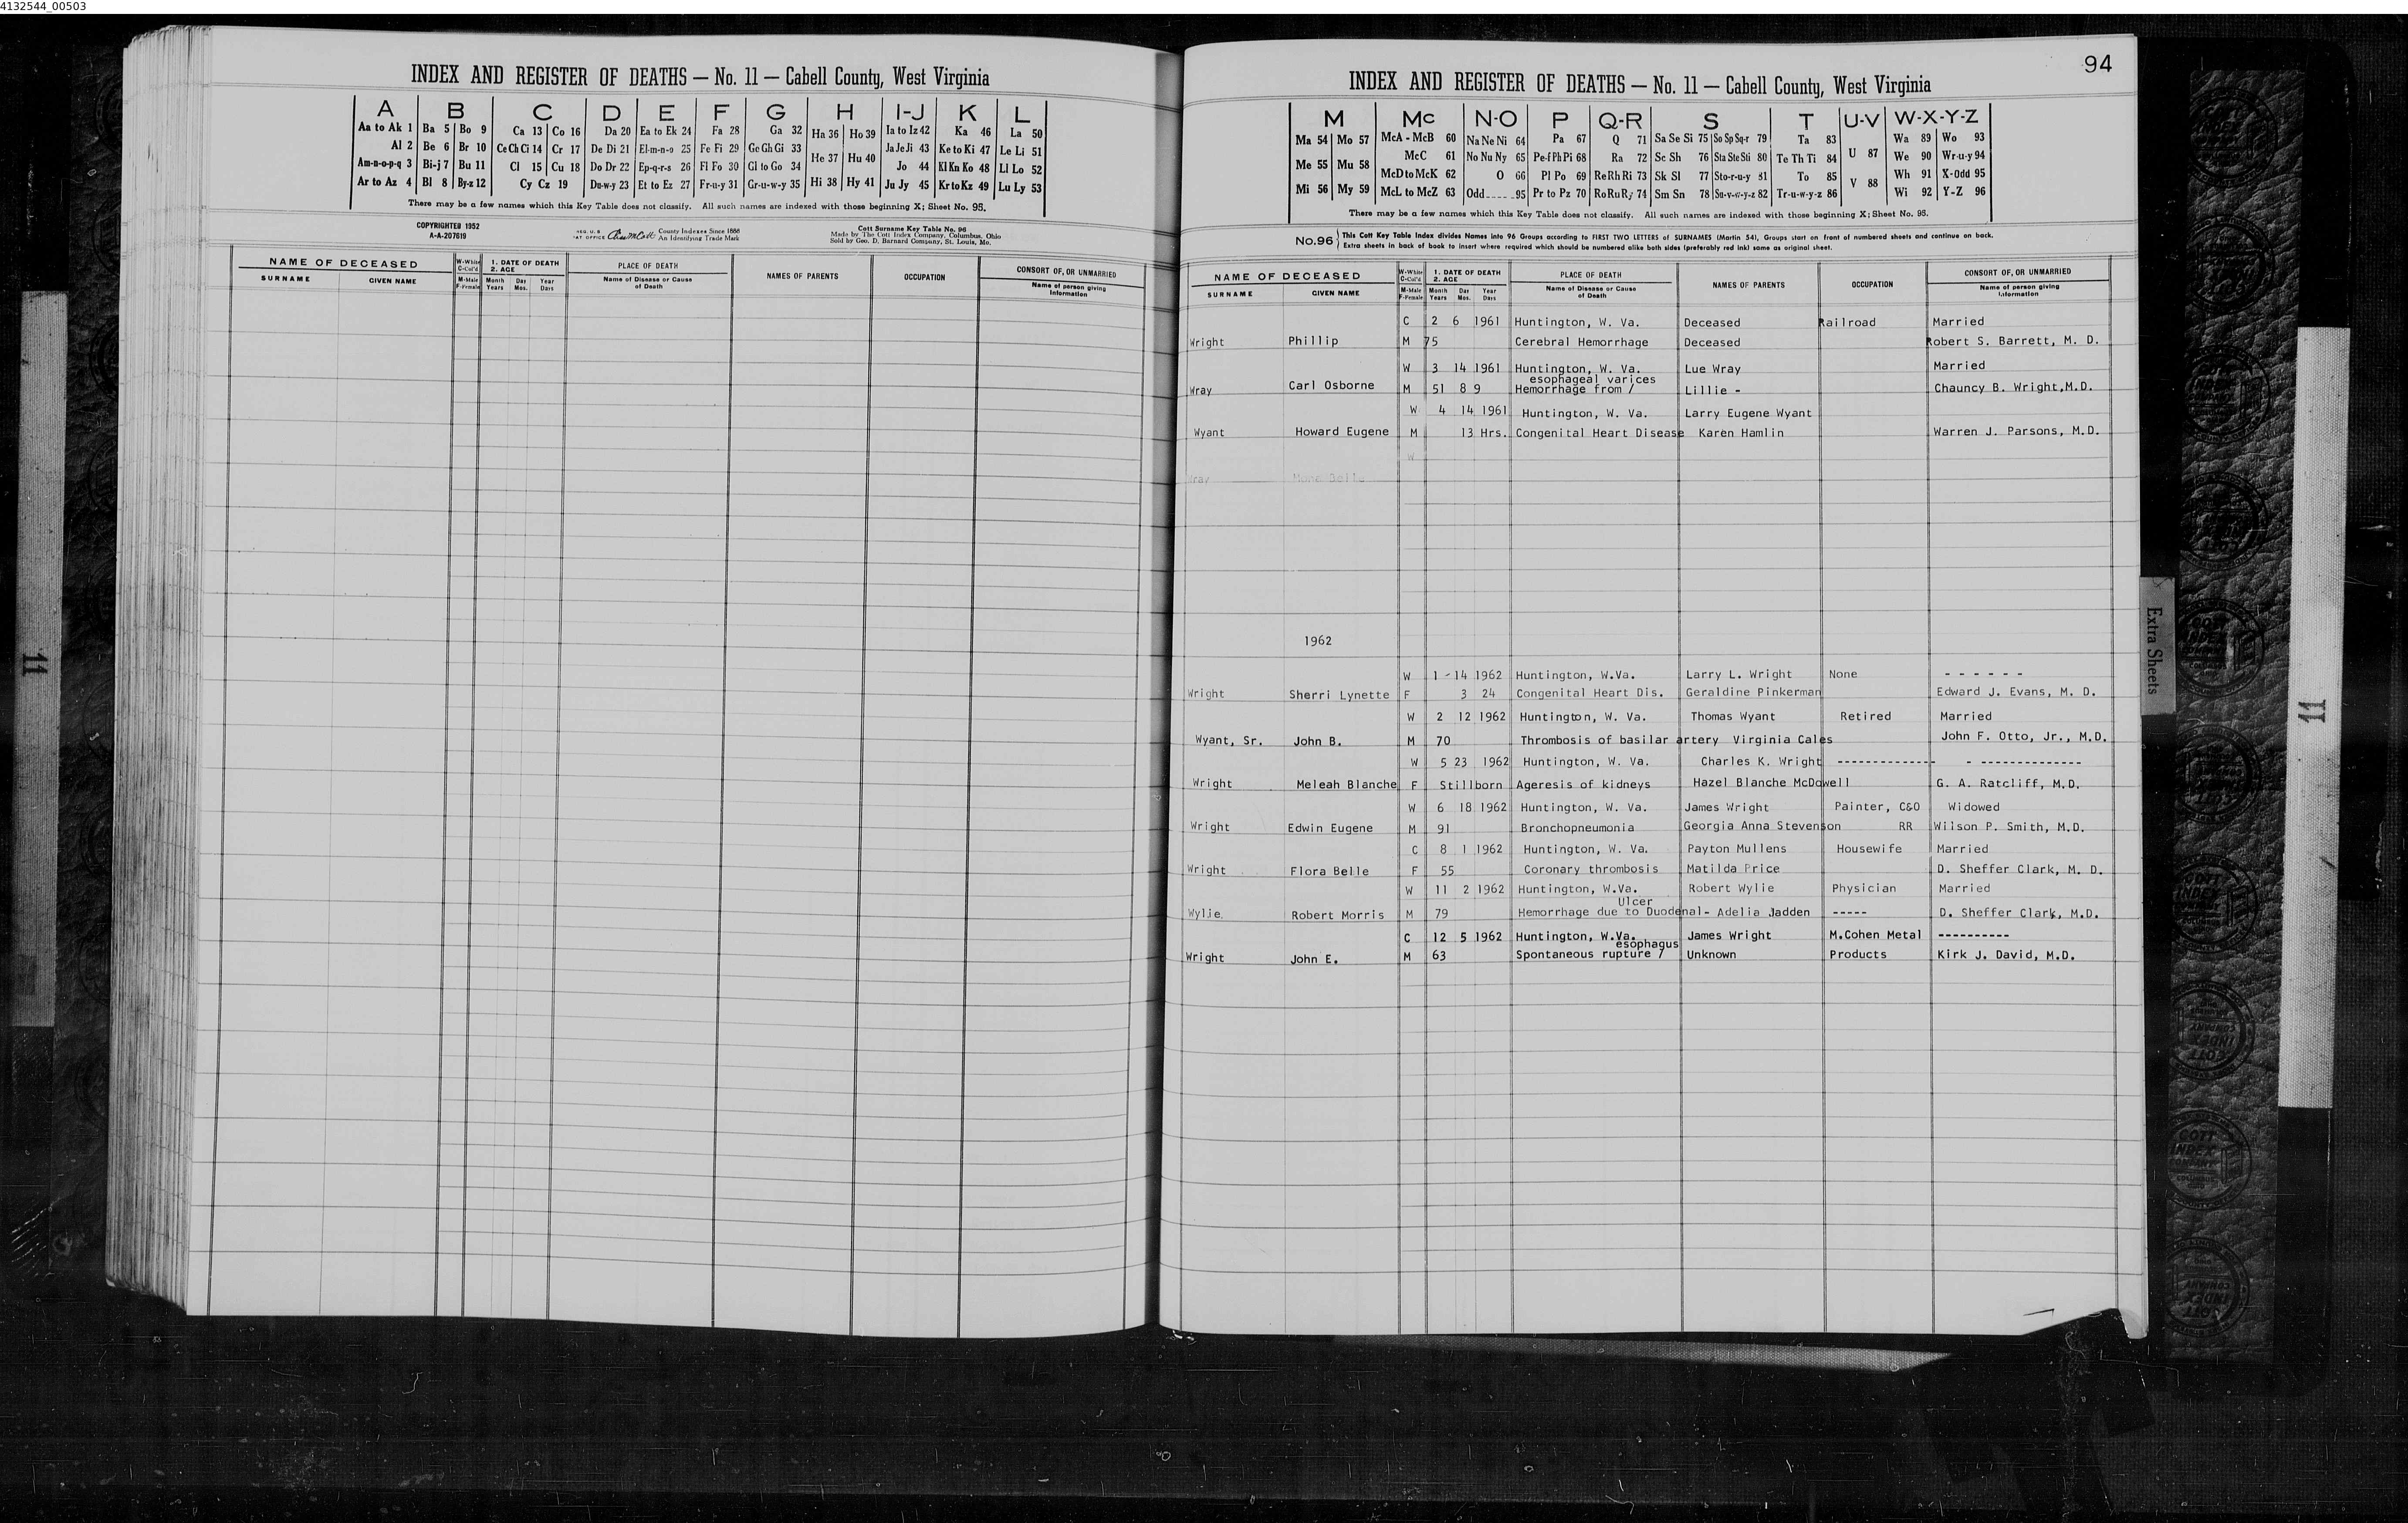 4132544_00503
INDEX AND REGISTER OF DEATHS — No. 11 — Cabell County, West Virginia
A B C D E F G H I-J K L
Aa to Ak 1 Ba 5 Bo 9 Ca 13 Co 16 Da 20 Ea to Ek 24 Fa 28 Ga 32 Ha 36 Ho 39 Ia to Iz 42 Ka 46 La 50
Al 2 Be 6 Br 10 Ce Ch Ci 14 Cr 17 De Di 21 El-m-n-o 25 Fe Fi 29 Ge Gh Gi 33 He 37 Hu 40 Ja Je Ji 43 Ke to Ki 47 Le Li 51
Am-n-o-p-q 3 Bi-j 7 Bu 11 Cl 15 Cu 18 Do Dr 22 Ep-q-r-s 26 Fl Fo 30 Gl to Go 34 Jo 44 Kl Kn Ko 48 Ll Lo 52
Ar to Az 4 Bl 8 By-z 12 Cy Cz 19 Du-w-y 23 Et to Ez 27 Fr-u-y 31 Gr-u-w-y 35 Hi 38 Hy 41 Ju Jy 45 Kr to Kz 49 Lu Ly 53
There may be a few names which this Key Table does not classify. All such names are indexed with those beginning X; Sheet No. 95.
COPYRIGHTED 1952
A-A-207619
County Indexes Since 1888
An Identifying Trade Mark
Cott Surname Key Table No. 96
Made by The Cott Index Company, Columbus, Ohio
Sold by Geo. D. Barnard Company, St. Louis, Mo.
NAME OF DECEASED
SURNAME GIVEN NAME
W-White
C-Col'd
M-Male
F-Female
1. DATE OF DEATH
2. AGE
Month Day Year
Years Mos. Days
PLACE OF DEATH
Name of Disease or Cause
of Death
NAMES OF PARENTS
OCCUPATION
CONSORT OF, OR UNMARRIED
Name of person giving
Information
94
INDEX AND REGISTER OF DEATHS — No. 11 — Cabell County, West Virginia
M Mc N-O P Q-R S T U-V W-X-Y-Z
Ma 54 Mo 57 McA - McB 60 Na Ne Ni 64 Pa 67 Q 71 Sa Se Si 75 So Sp Sq-r 79 Ta 83 Wa 89 Wo 93
Me 55 Mu 58 McC 61 No Nu Ny 65 Pe-f Ph Pi 68 Ra 72 Sc Sh 76 Sta Ste Sti 80 Te Th Ti 84 U 87 We 90 Wr-u-y 94
McD to McK 62 O 66 Pl Po 69 Re Rh Ri 73 Sk Sl 77 Sto-r-u-y 81 To 85 Wh 91 X-Odd 95
Mi 56 My 59 McL to McZ 63 Odd 95 Pr to Pz 70 Ro Ru Ry 74 Sm Sn 78 Su-v-w-y-z 82 Tr-u-w-y-z 86 V 88 Wi 92 Y-Z 96
There may be a few names which this Key Table does not classify. All such names are indexed with those beginning X; Sheet No. 95.
No. 96 This Cott Key Table Index divides Names into 96 Groups according to FIRST TWO LETTERS of SURNAMES (Martin 54), Groups start on front of numbered sheets and continue on back.
Extra sheets in back of book to insert where required which should be numbered alike both sides (preferably red ink) same as original sheet.
NAME OF DECEASED
SURNAME GIVEN NAME
W-White
C-Col'd
M-Male
F-Female
1. DATE OF DEATH
2. AGE
Month Day Year
Years Mos. Days
PLACE OF DEATH
Name of Disease or Cause
of Death
NAMES OF PARENTS
OCCUPATION
CONSORT OF, OR UNMARRIED
Name of person giving
Information
C 2 6 1961 Huntington, W. Va. Deceased Railroad Married
Wright Phillip M 75 Cerebral Hemorrhage Deceased Robert S. Barrett, M. D.
W 3 14 1961 Huntington, W. Va. Lue Wray Married
esophageal varices
Wray Carl Osborne M 51 8 9 Hemorrhage from / Lillie - Chauncy B. Wright,M.D.
W 4 14 1961 Huntington, W. Va. Larry Eugene Wyant
Wyant Howard Eugene M 13 Hrs. Congenital Heart Disease Karen Hamlin Warren J. Parsons, M.D.
W
Wray Belle
1962
W 1 - 14 1962 Huntington, W.Va. Larry L. Wright None - - - - - -
Wright Sherri Lynette F 3 24 Congenital Heart Dis. Geraldine Pinkerman Edward J. Evans, M. D.
W 2 12 1962 Huntington, W. Va. Thomas Wyant Retired Married
Wyant, Sr. John B. M 70 Thrombosis of basilar artery Virginia Cales John F. Otto, Jr., M.D.
W 5 23 1962 Huntington, W. Va. Charles K. Wright ------------- - --------------
Wright Meleah Blanche F Stillborn Ageresis of kidneys Hazel Blanche McDowell G. A. Ratcliff, M.D.
W 6 18 1962 Huntington, W. Va. James Wright Painter, C&O Widowed
Wright Edwin Eugene M 91 Bronchopneumonia Georgia Anna Stevenson RR Wilson P. Smith, M.D.
C 8 1 1962 Huntington, W. Va. Payton Mullens Housewife Married
Wright Flora Belle F 55 Coronary thrombosis Matilda Price D. Sheffer Clark, M. D.
W 11 2 1962 Huntington, W.Va. Robert Wylie Physician Married
Ulcer
Wylie. Robert Morris M 79 Hemorrhage due to Duodenal- Adelia Jadden ----- D. Sheffer Clark, M.D.
C 12 5 1962 Huntington, W.Va. James Wright M.Cohen Metal ----------
esophagus
Wright John E. M 63 Spontaneous rupture / Unknown Products Kirk J. David, M.D.
Extra Sheets
11
11